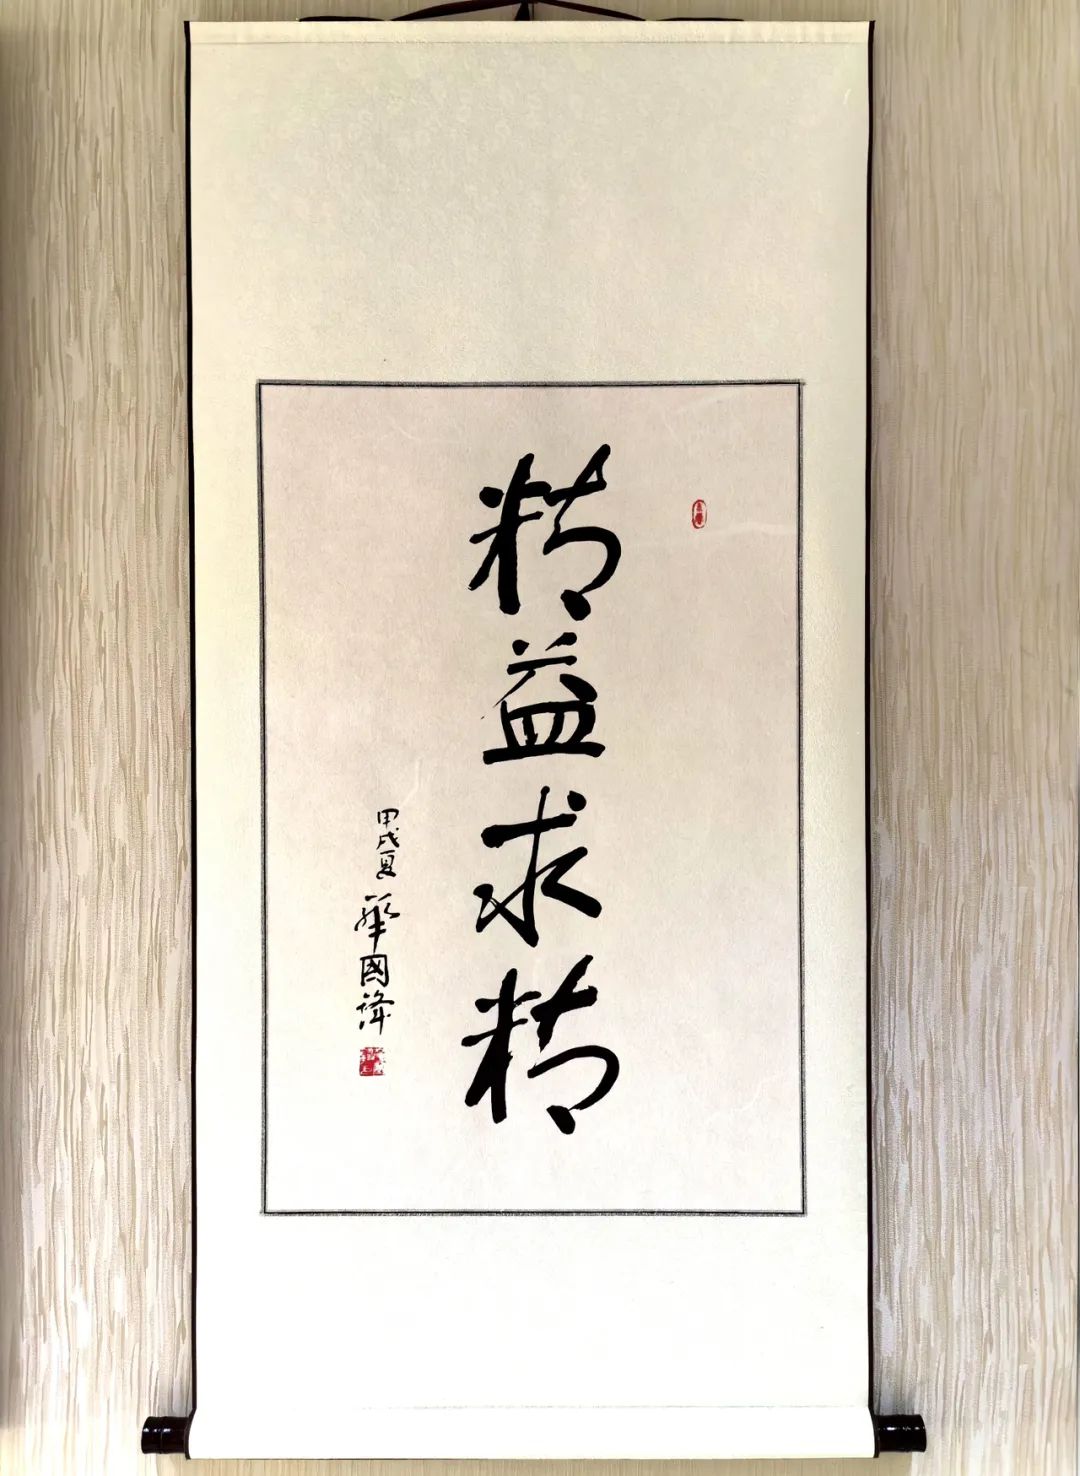 精益求精
甲戌夏 華國鋒